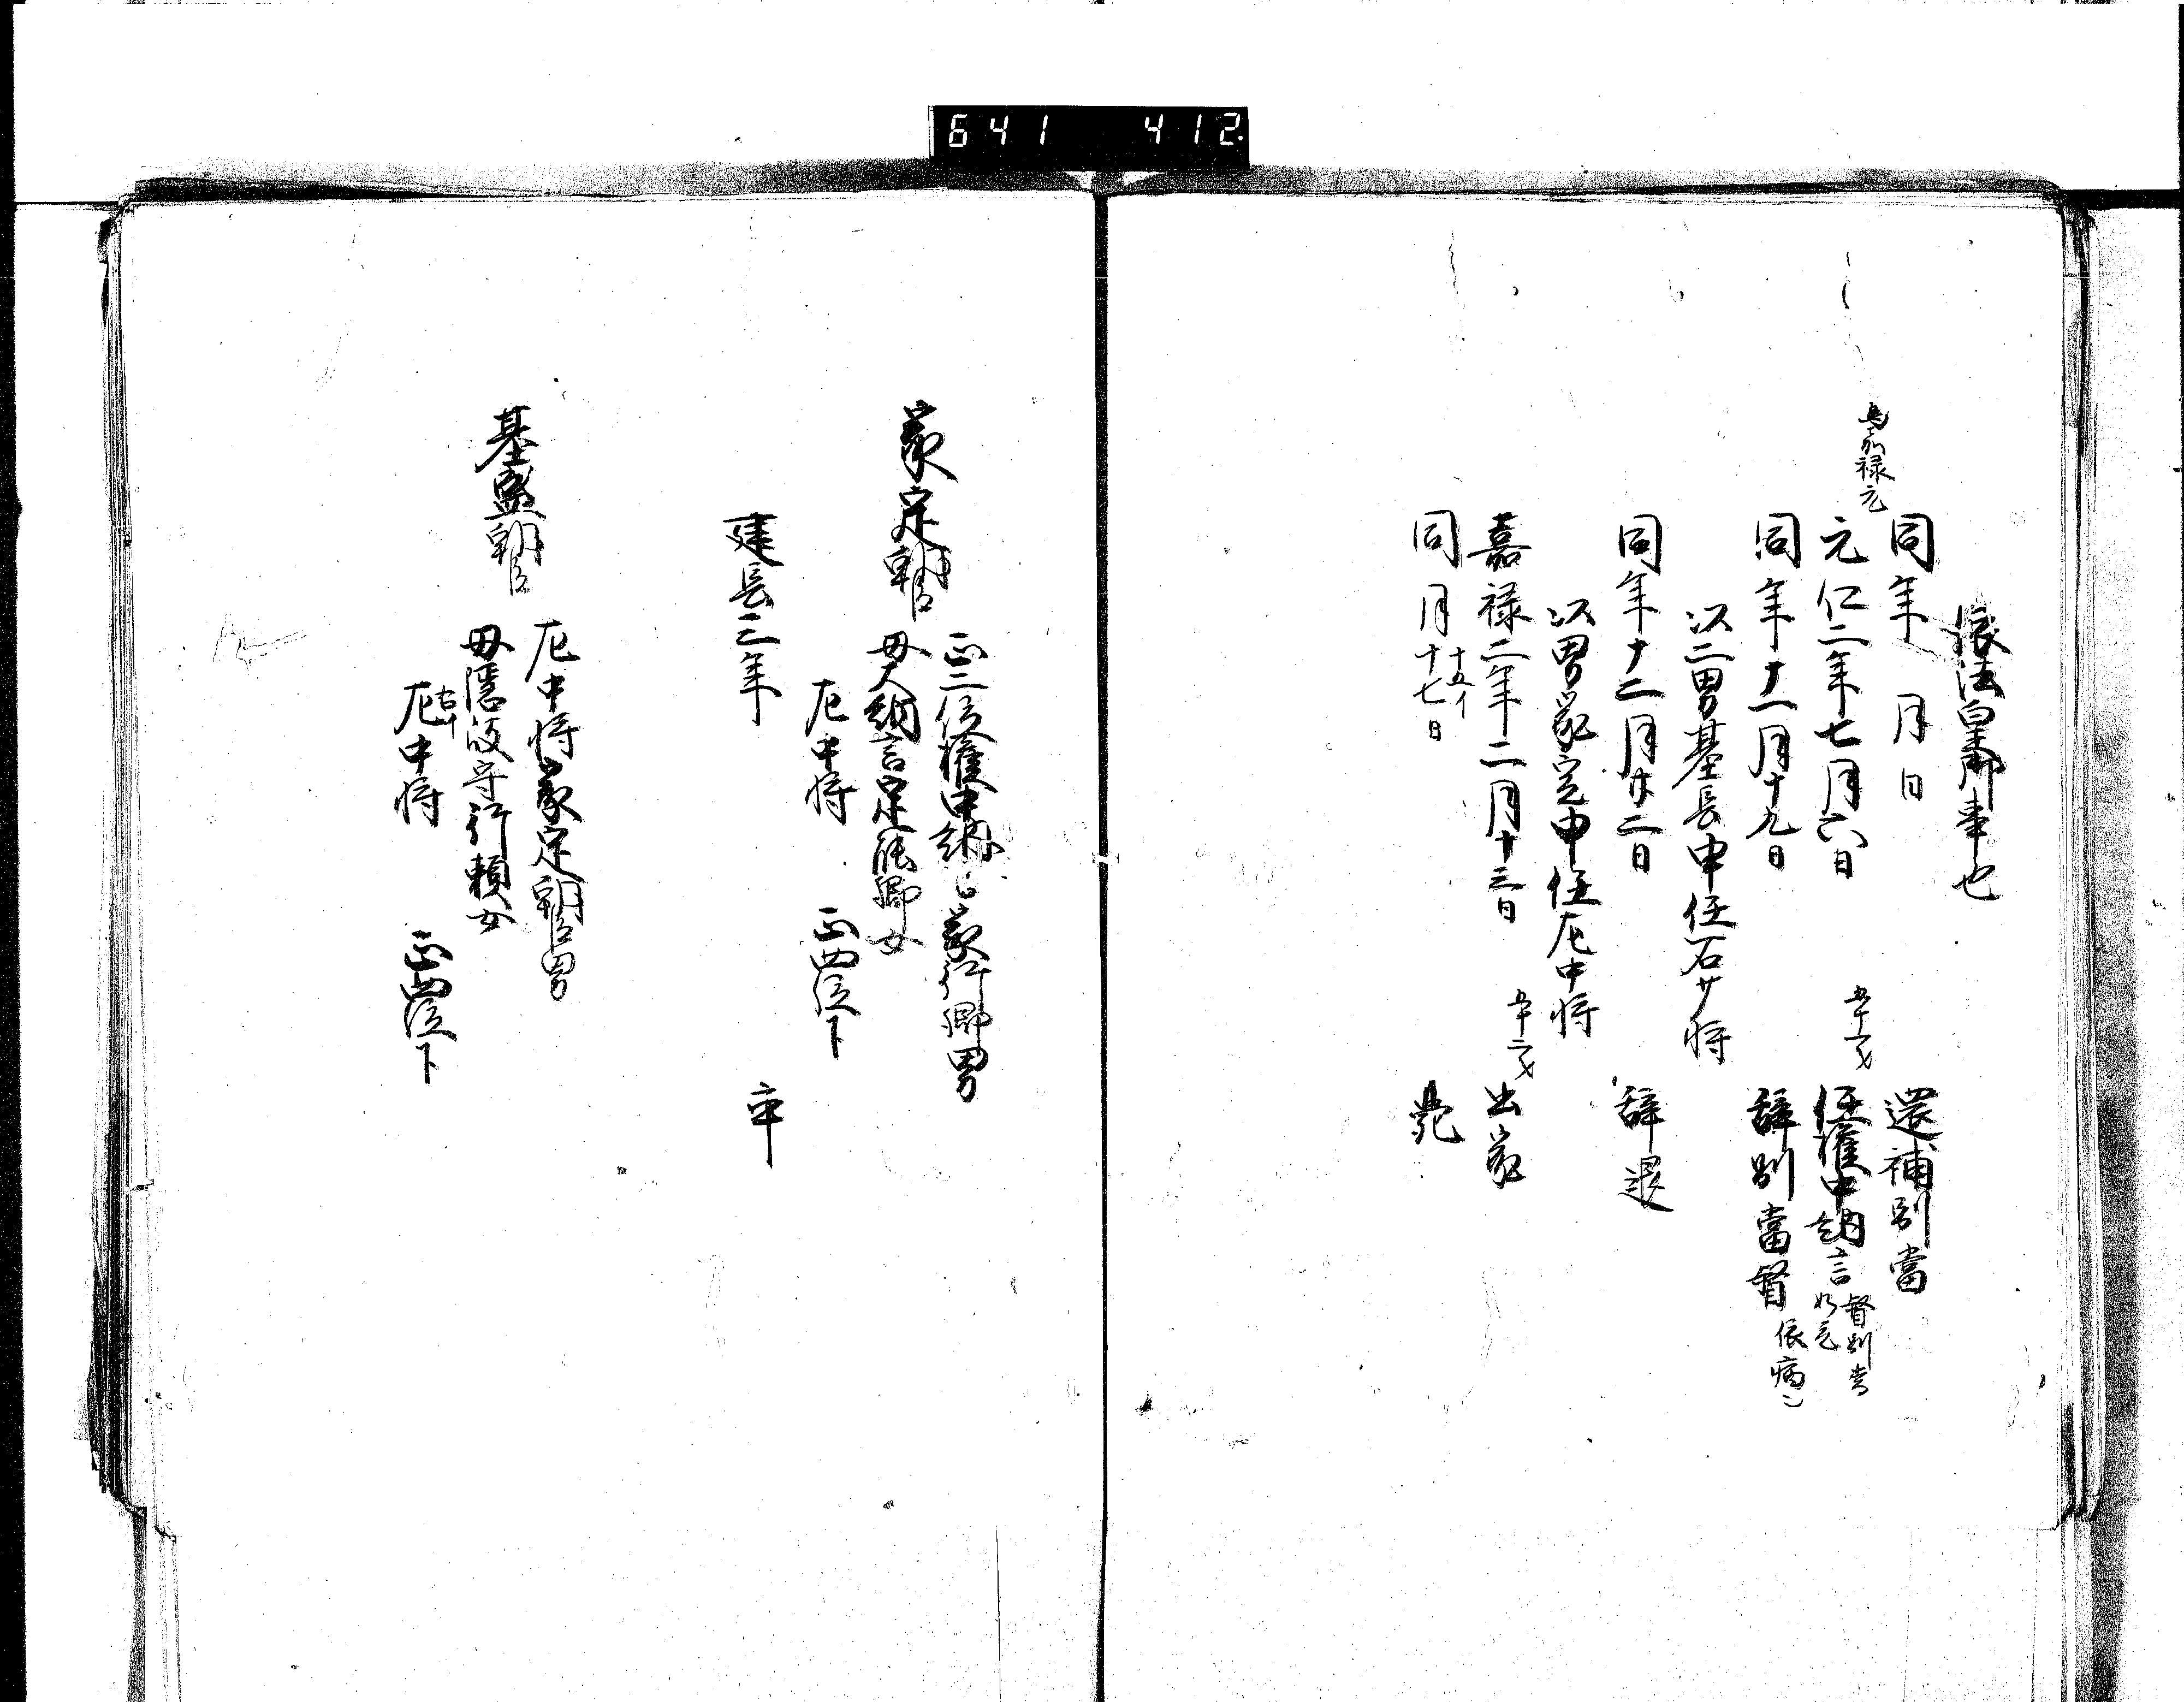 641 412
依法皇御事也
同年 月 日 還補別當
為嘉禄元
元仁二年七月六日 五十一才 任権中納言 督別當如元
同年十一月十九日 辞別當督 依病也
以二男基長申任右少将
同年十二月廿二日 辞退
以男家定申任左中将
嘉禄二年二月十三日 五十二才 出家
同月十七日 十五イ 薨
家定朝臣
正二位権中納言家行卿男
母大納言定能卿女
左中将 正四位下
建長二年 卒
基盛朝臣
左中将家定朝臣男
母隠岐守行頼女
左中将 右イ 正四位下